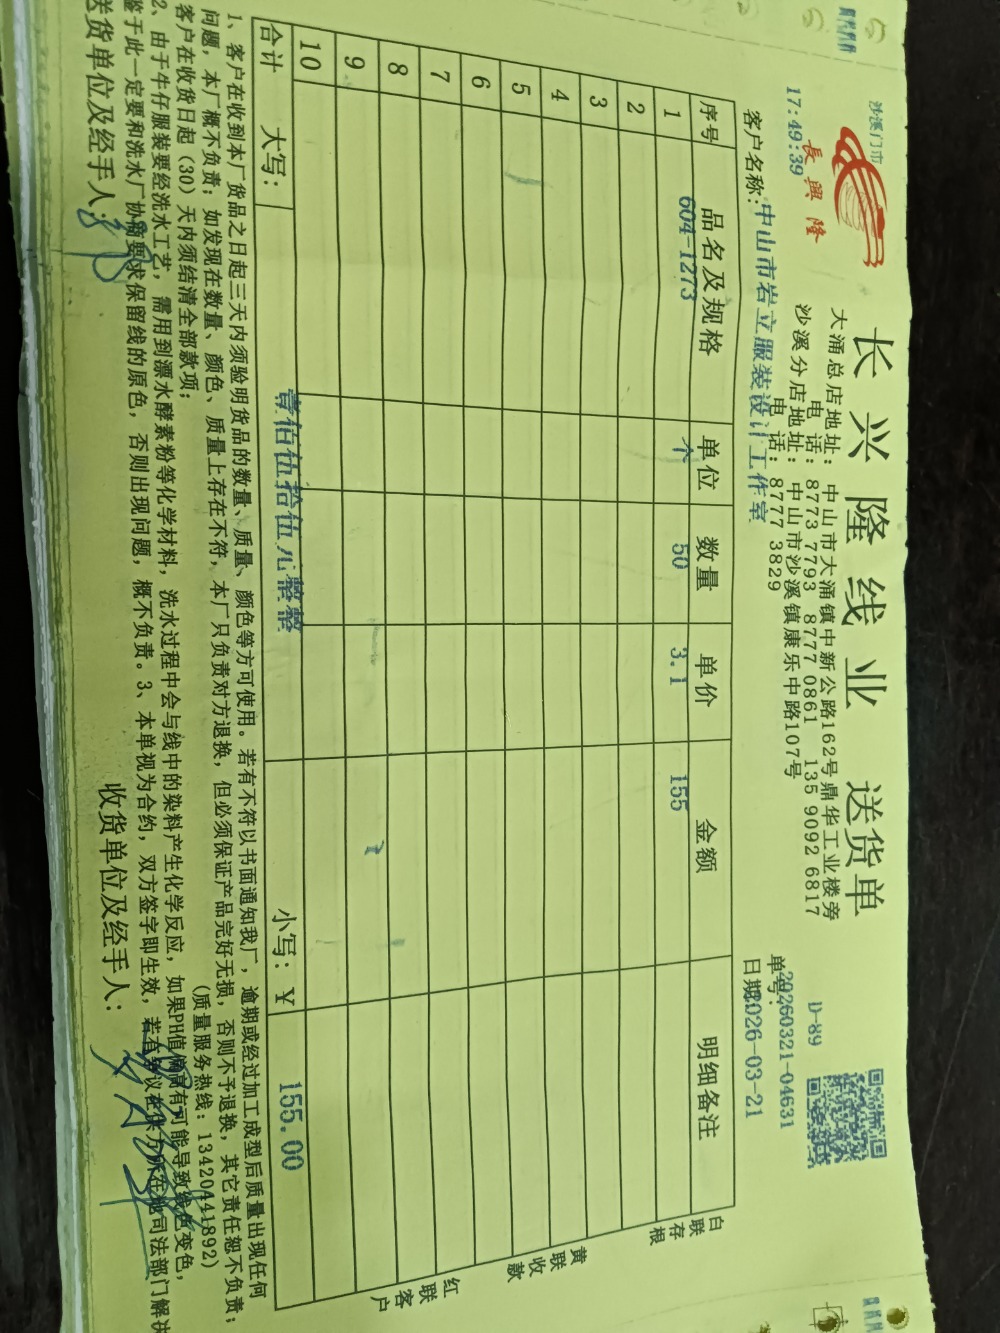 沙溪门市
長興隆
17:49:39
长兴隆线业 送货单
大涌总店地址：中山市大涌镇中新公路162号鼎华工业楼旁
电 话：8773 7793 8777 0861 135 9092 6817
沙溪分店地址：中山市沙溪镇康乐中路107号
电 话：8777 3829
D-89
单号：20260321-04631
客户名称：中山市岩立服装设计工作室
日期：2026-03-21
序号 品名及规格 单位 数量 单价 金额 明细备注
1 604-1273 个 50 3.1 155
2
3
4
5
6
7
8
9
10
合计 大写： 壹佰伍拾伍元整整 小写：￥ 155.00
白联存根
黄联收款
红联客户
1、客户在收到本厂货品之日起三天内须验明货品的数量、质量、颜色等方可使用。若有不符以书面通知我厂，逾期或经过加工成型后质量出现任何
问题，本厂概不负责；如发现在数量、颜色、质量上存在不符，本厂只负责对方退换，但必须保证产品完好无损，否则不予退换，其它责任恕不负责；
客户在收货日起（30）天内须结清全部款项；
(质量服务热线：13420441892)
2、由于牛仔服装要经洗水工艺，需用到漂水酵素粉等化学材料，洗水过程中会与线中的染料产生化学反应，如果PH值偏高有可能导致线色变色，
鉴于此一定要和洗水厂协商要求保留线的原色，否则出现问题，概不负责。3、本单视为合约，双方签字即生效，若有争议在供方所在地司法部门解决
送货单位及经手人：
收货单位及经手人：